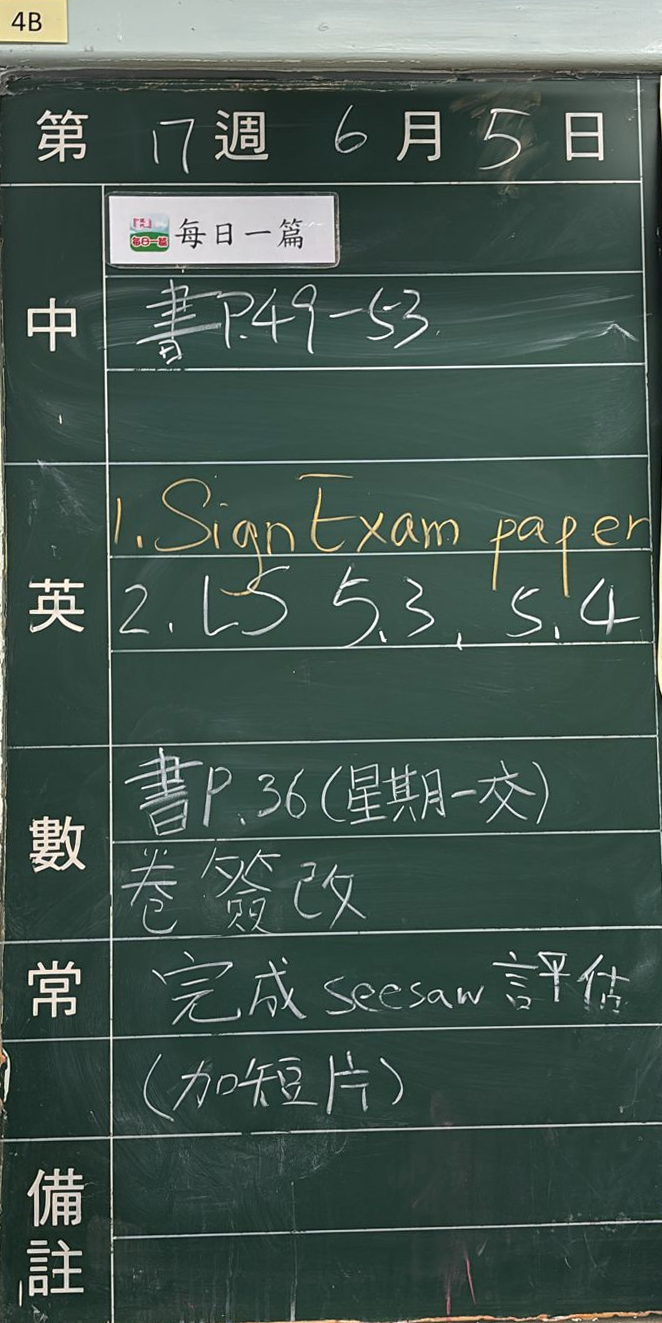 4B
第 17 週 6 月 5 日
中
每日一篇 每日一篇
書P.49-53.
英
1. Sign Exam paper
2. LS 5.3, 5.4
數
書P.36(星期一交)
卷簽改
常
完成seesaw評估
(加短片)
備註